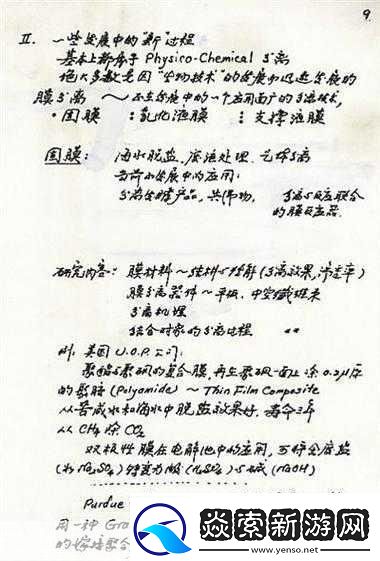 9.
II. 一些发展中的"新"过程
基本上都属于 Physico-Chemical 分离
绝大多数是因"生物技术"的发展而迅速发展的
膜分离 ～ 正在发展中的一个应用面广的分离技术,
·固膜 :乳化液膜 :支撑液膜
固膜: 海水脱盐、废液处理、气体分离
目前发展中的应用:
分离发酵产品,共沸物, 分离与反应联合
的膜反应器.
研究内容: 膜材料～结构与性能(分离效果,渗透率)
膜分离器件～平板、中空纤维束
分离机理
结合对象的分离过程
附: 美国 U.O.P. 公司:
聚酰与聚砜的复合膜, 再在聚砜一面上涂 0.2μ厚
的聚酰 (Polyamide) ～ Thin Film Composite
从苦咸水和海水中脱盐效果好, 寿命三年
从 CH4 除 CO2
双极性膜在电解池中的应用, 可将金属盐
(如 Na2SO4) 转变为酸 (H2SO4) 与碱 (NaOH)
Purdue
用一种 Gra
的嫁接聚合
焱索新游网
www.yenso.net